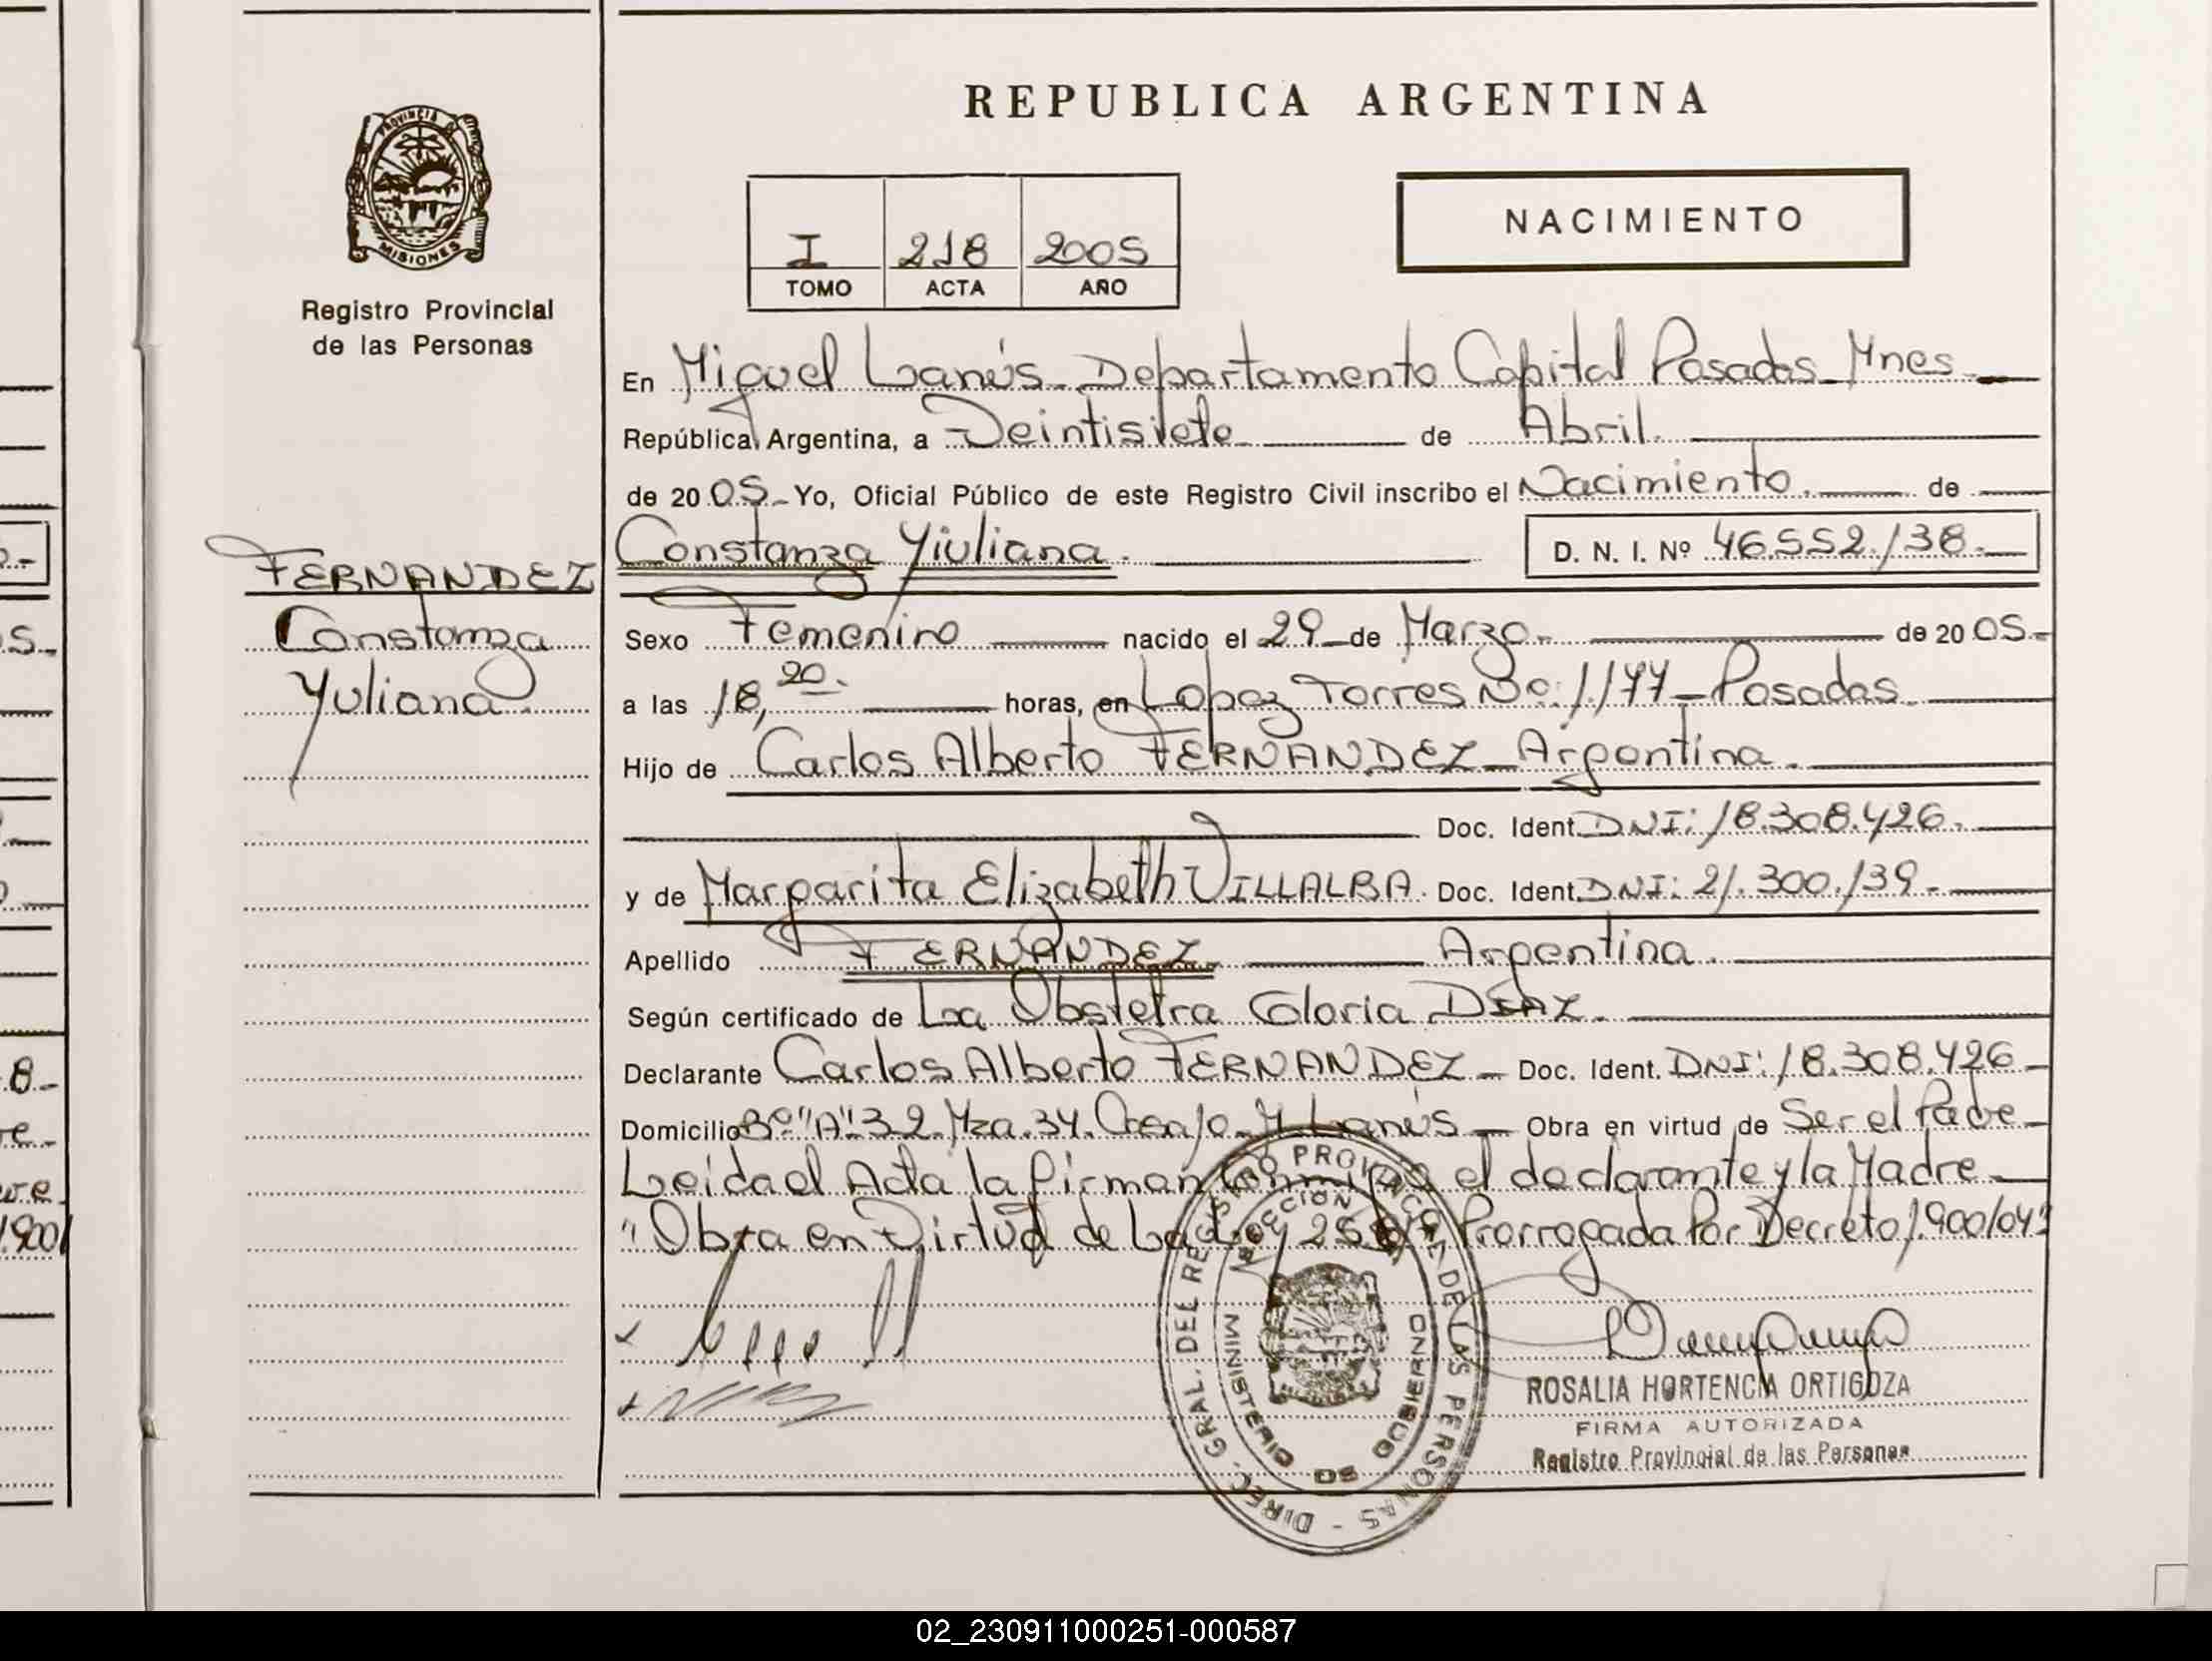 REPUBLICA ARGENTINA
PROVINCIA DE
MISIONES
Registro Provincial
de las Personas
I 218 2005
TOMO ACTA AÑO
NACIMIENTO
En Miguel Lanús Departamento Capital Posadas Mnes
República Argentina, a Veintisiete de Abril
de 20 05 Yo, Oficial Público de este Registro Civil inscribo el Nacimiento de
Constanza Yiuliana. D. N. I. Nº 46.552.138
FERNANDEZ
Constanza
Yuliana
Sexo Femenino nacido el 29 de Marzo de 20 05
a las 18,20 horas, en Lopez Torres No: 1.177 Posadas
Hijo de Carlos Alberto FERNANDEZ Argentina
Doc. Ident. DNI: 18.308.426
y de Margarita Elizabeth VILLALBA. Doc. Ident. DNI: 21.300.139
Apellido FERNANDEZ Argentina
Según certificado de La Obstetra Gloria DIAZ
Declarante Carlos Alberto FERNANDEZ Doc. Ident. DNI: 18.308.426
Domicilio Bº "A" 32 Mza. 34. Casa 10 M Lanús Obra en virtud de Ser el Padre
Leida el Acta la firman conmigo el declarante y la Madre
"Obra en Virtud de La Ley Prorrogada Por Decreto 1.900/04"
DIREC. GRAL. DEL REGISTRO PROVINCIAL DE LAS PERSONAS
MINISTERIO DE GOBIERNO
ROSALIA HORTENCIA ORTIGOZA
FIRMA AUTORIZADA
Registro Provincial de las Personas
02_230911000251-000587